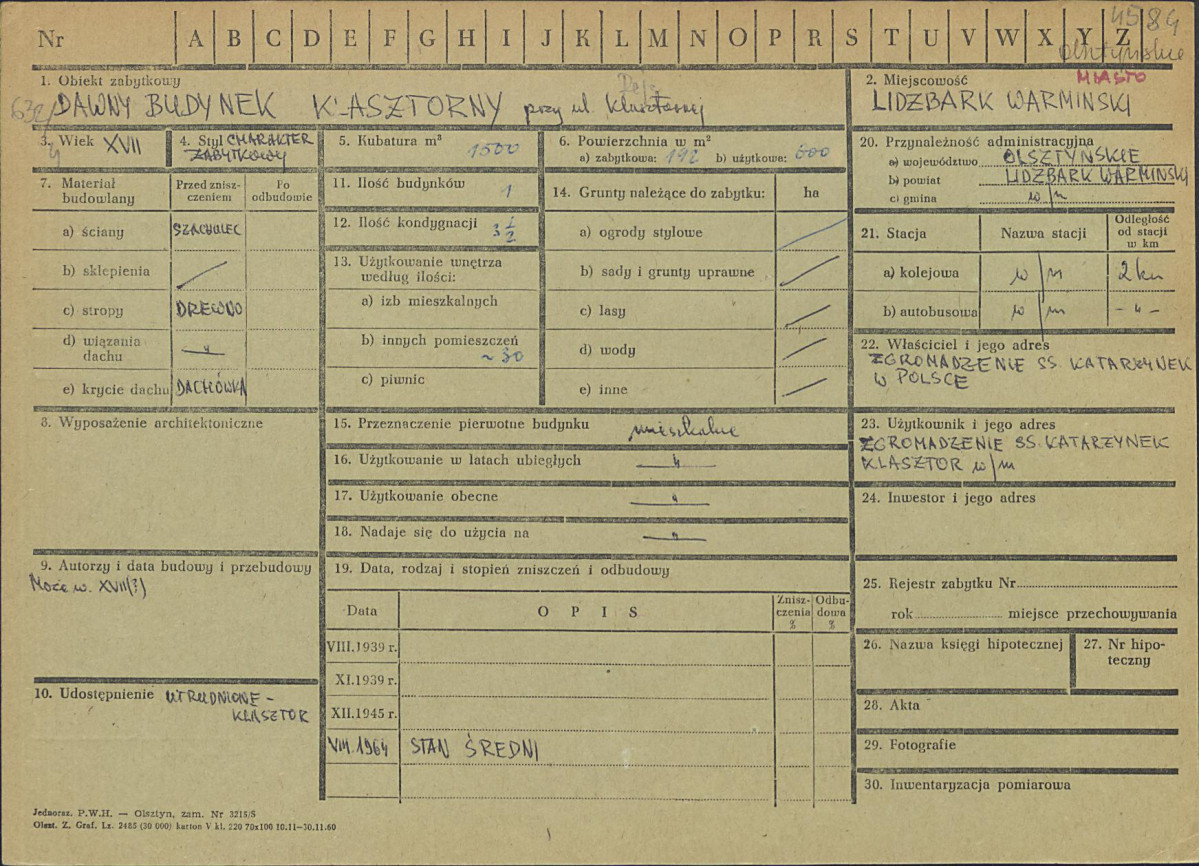 4584
Nr A B C D E F G H I J K L M N O P R S T U V W X Y Z
olsztyńskie
1. Obiekt zabytkowy
DAWNY BUDYNEK KLASZTORNY przy ul. Klasztornej
2. Miejscowość MIASTO
LIDZBARK WARMINSKI
3. Wiek XVII
4. Styl CHARAKTER
ZABYTKOWY
5. Kubatura m³
1500
6. Powierzchnia w m²
a) zabytkowa: 192 b) użytkowa: 600
7. Materiał budowlany
Przed zniszczeniem
Po odbudowie
a) ściany SZACHULEC
b) sklepienia
c) stropy DREWNO
d) wiązania
dachu — " —
e) krycie dachu DACHÓWKA
8. Wyposażenie architektoniczne
9. Autorzy i data budowy i przebudowy
Może w. XVII(?)
10. Udostępnienie UTRUDNIONE -
KLASZTOR
11. Ilość budynków 1
12. Ilość kondygnacji 3 1/2
13. Użytkowanie wnętrza
według ilości:
a) izb mieszkalnych
b) innych pomieszczeń
~ 30
c) piwnic
14. Grunty należące do zabytku: ha
a) ogrody stylowe
b) sady i grunty uprawne
c) lasy
d) wody
e) inne
15. Przeznaczenie pierwotne budynku mieszkalne
16. Użytkowanie w latach ubiegłych — " —
17. Użytkowanie obecne — " —
18. Nadaje się do użycia na — " —
19. Data, rodzaj i stopień zniszczeń i odbudowy
Data O P I S Zniszczenia % Odbudowa %
VIII.1939 r.
XI.1939 r.
XII.1945 r.
VIII.1964 STAN ŚREDNI
20. Przynależność administracyjna
a) województwo OLSZTYŃSKIE
b) powiat LIDZBARK WARMIŃSKI
c) gmina w/m
21. Stacja Nazwa stacji Odległość
od stacji
w km
a) kolejowa w/m 2 km
b) autobusowa w/m - " -
22. Właściciel i jego adres
ZGROMADZENIE SS. KATARZYNEK
W POLSCE
23. Użytkownik i jego adres
ZGROMADZENIE SS. KATARZYNEK
KLASZTOR w/m
24. Inwestor i jego adres
25. Rejestr zabytku Nr
rok miejsce przechowywania
26. Nazwa księgi hipotecznej
27. Nr hipoteczny
28. Akta
29. Fotografie
30. Inwentaryzacja pomiarowa
Jednoraz. P.W.H. — Olsztyn, zam. Nr 3215/S
Olszt. Z. Graf. Lz. 2485 (30 000) karton V kl. 220 70x100 10.11—30.11.60